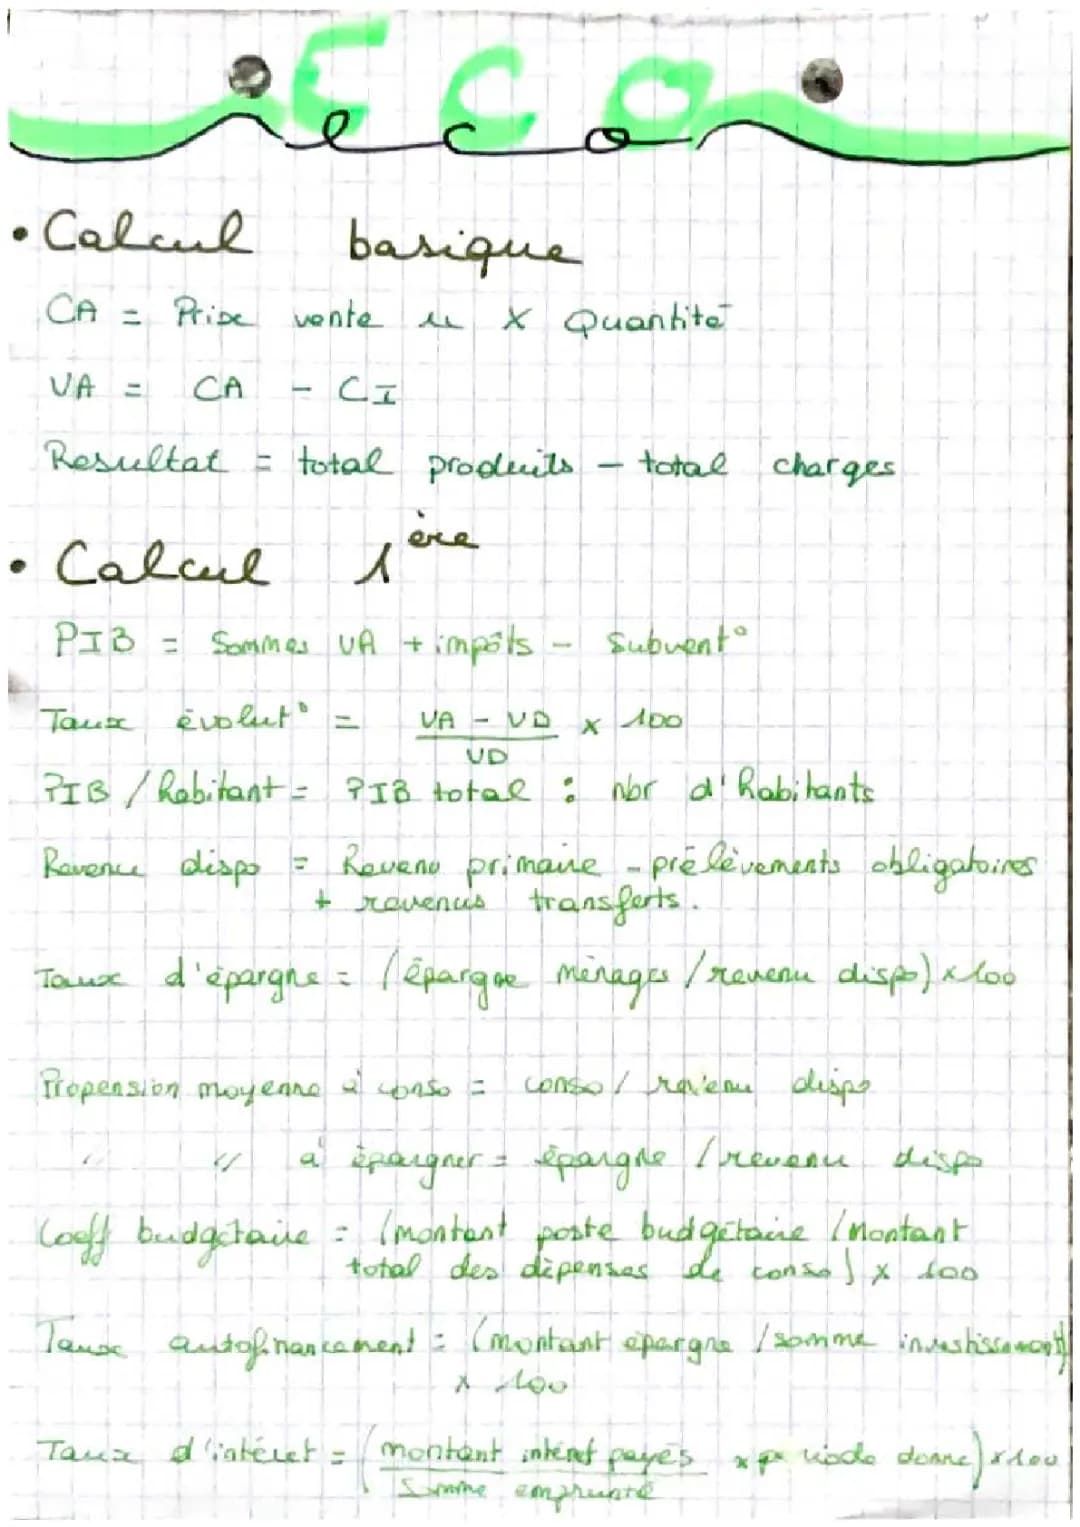 ECO
eco
• Calcul basique
CA = Prix vente u x Quantité
VA = CA - CI
Resultat = total produits - total charges
• Calcul 1ère
PIB = Sommes VA + impôts - Subvent°
Taux évolut° = VA - VD x 100
VD
PIB / habitant = PIB total : nbr d'habitants
Revenu dispo = Revenu primaire - prélèvements obligatoires
+ revenus transferts.
Taux d'épargne = (épargne ménages / revenu dispo) x 100
Propension moyenne à conso = conso / revenu dispo
" " à épargner = épargne / revenu dispo
Coeff budgétaire = (montant poste budgétaire / Montant
total des dépenses de conso) x 100
Taux autofinancement = (montant épargne / somme investissement)
x 100
Taux d'intéret = (montant intéret payés x periode donne) x 100
Somme emprunté